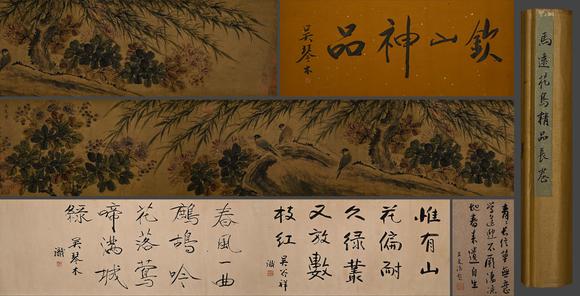 欽山神品
吳琴木
馬遠花鳥精品長卷
惟有山
花偏耐
久綠叢
又放數
枝紅
吳谷祥
春風一曲
鷓鴣吟
花落鶯
啼滿城
綠
吳琴木
地春來還自生